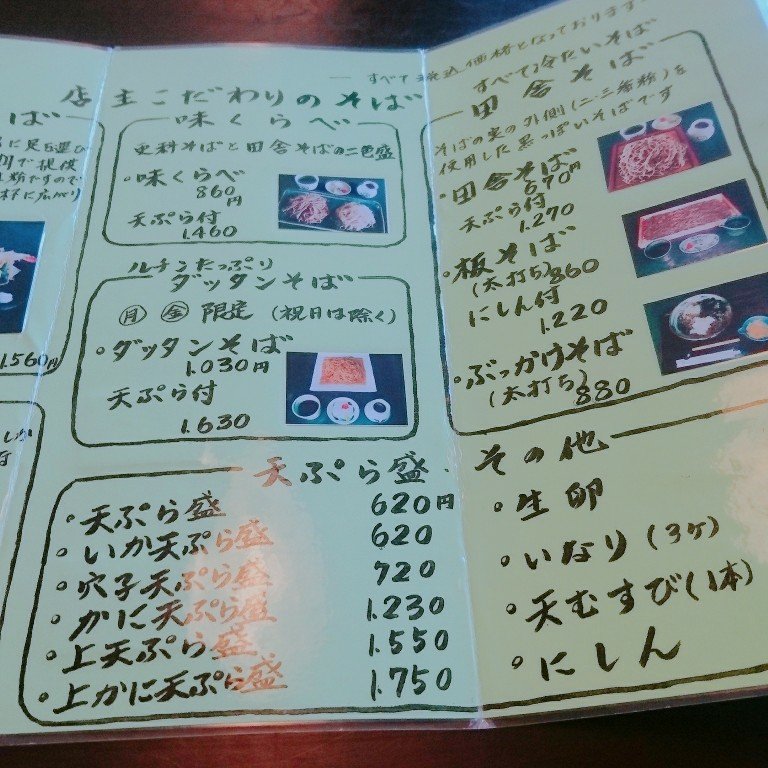 すべて税込価格となっております
店主こだわりのそば
味くらべ
更科そばと田舎そばの二色盛
・味くらべ
860円
天ぷら付
1,460
ルチンたっぷり
ダッタンそば
月 金 限定 (祝日は除く)
・ダッタンそば
1,030円
天ぷら付
1,630
天ぷら盛
・天ぷら盛 620円
・いか天ぷら盛 620
・穴子天ぷら盛 720
・かに天ぷら盛 1,230
・上天ぷら盛 1,550
・上かに天ぷら盛 1,750
すべて冷たいそば
田舎そば
そばの実の外側(二・三番粉)を
使用した黒っぽいそばです
・田舎そば
670円
天ぷら付
1,270
・板そば
(太打ち) 860
にしん付
1,220
・ぶっかけそば
(太打ち)
880
その他
・生卵
・いなり(3ヶ)
・天むすび(1本)
・にしん
そば
1,560円